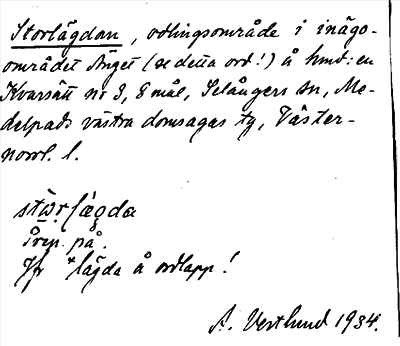 Storlägdan, odlingsområde i inägo-
området Änget (se detta ord!) å hmd: en
Kvarsätt nr 3, 8 mål, Selångers sn, Me-
delpads västra domsagas tg, Väster-
norrl. l.
stw̤r lǽgda
Prep. på.
Jfr *lägda å ordlapp!
A. Vestlund 1934.